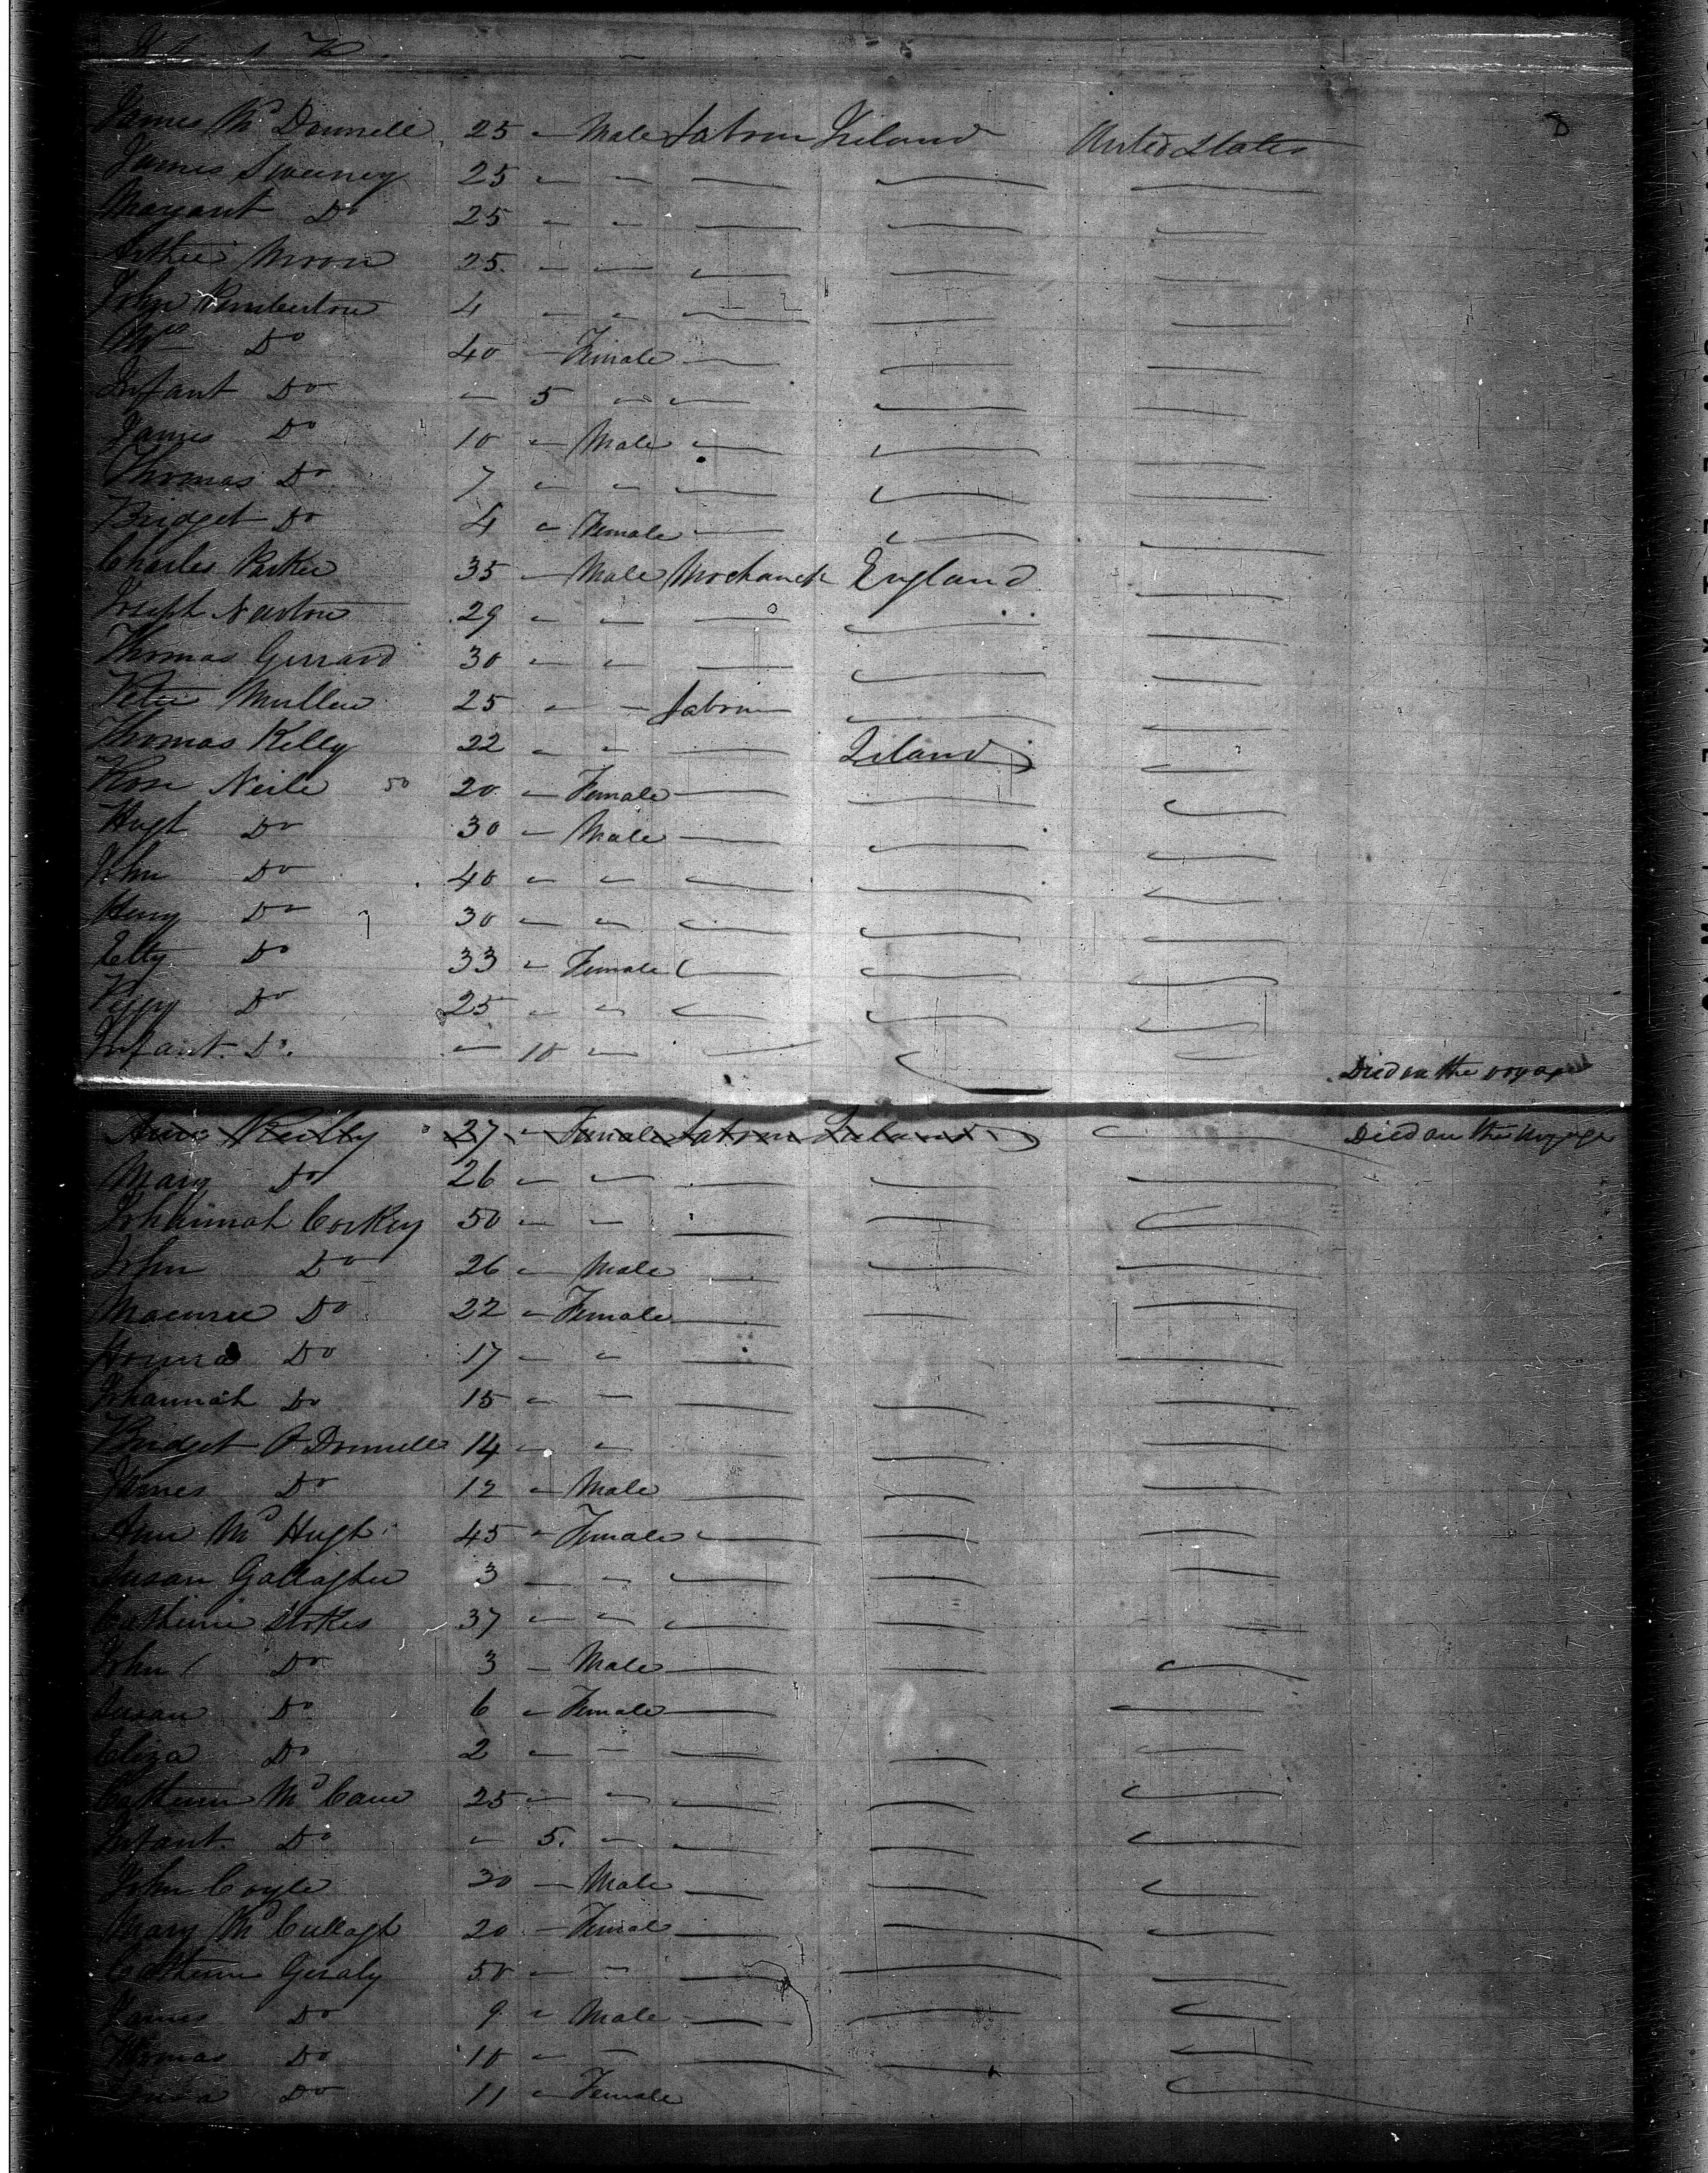 James McDonnell 25 - Male Labour Ireland United States 8
James Sweeney 25 - -
Margaret Do 25 - -
Arthur Moore 25 - -
John Pemberton 4 - -
Mrs Do 40 - Female
Infant Do - 5 -
James Do 10 - Male
Thomas Do 7 - -
Bridget Do 4 - Female
Charles Parker 35 - Male Mechanick England
Joseph Newton 29 - -
Thomas Gerrard 30 - -
Peter Mullen 25 - - Labour
Thomas Kelly 22 - - Ireland
Rose Neile 50 20 - Female
Hugh Do 30 - Male
John Do 40 - -
Henry Do 30 - -
Do 33 - Female
Peggy Do 25 - -
Infant Do - 10 - Died on the voyage
Ann Reilly 27 - Female Labour Ireland Died on the voyage
Mary Do 26 - -
Johannah Corkey 50 - -
John Do 26 - Male
Do 22 - Female
Honora Do 17 - -
Johannah Do 15 - -
Bridget O Donnell 14 - -
James Do 12 - Male
Ann McHugh 45 - Female
Susan Gallagher 3 - -
Catherine Stokes 37 - -
John Do 3 - Male
Susan Do 6 - Female
Eliza Do 2 - -
Catherine McCann 25 - -
Infant Do - 5 -
John Coyle 30 - Male
Mary McCullagh 20 - Female
Catherine Geraty 50 - -
James Do 9 - Male
Thomas Do 10 - -
Do 11 - Female